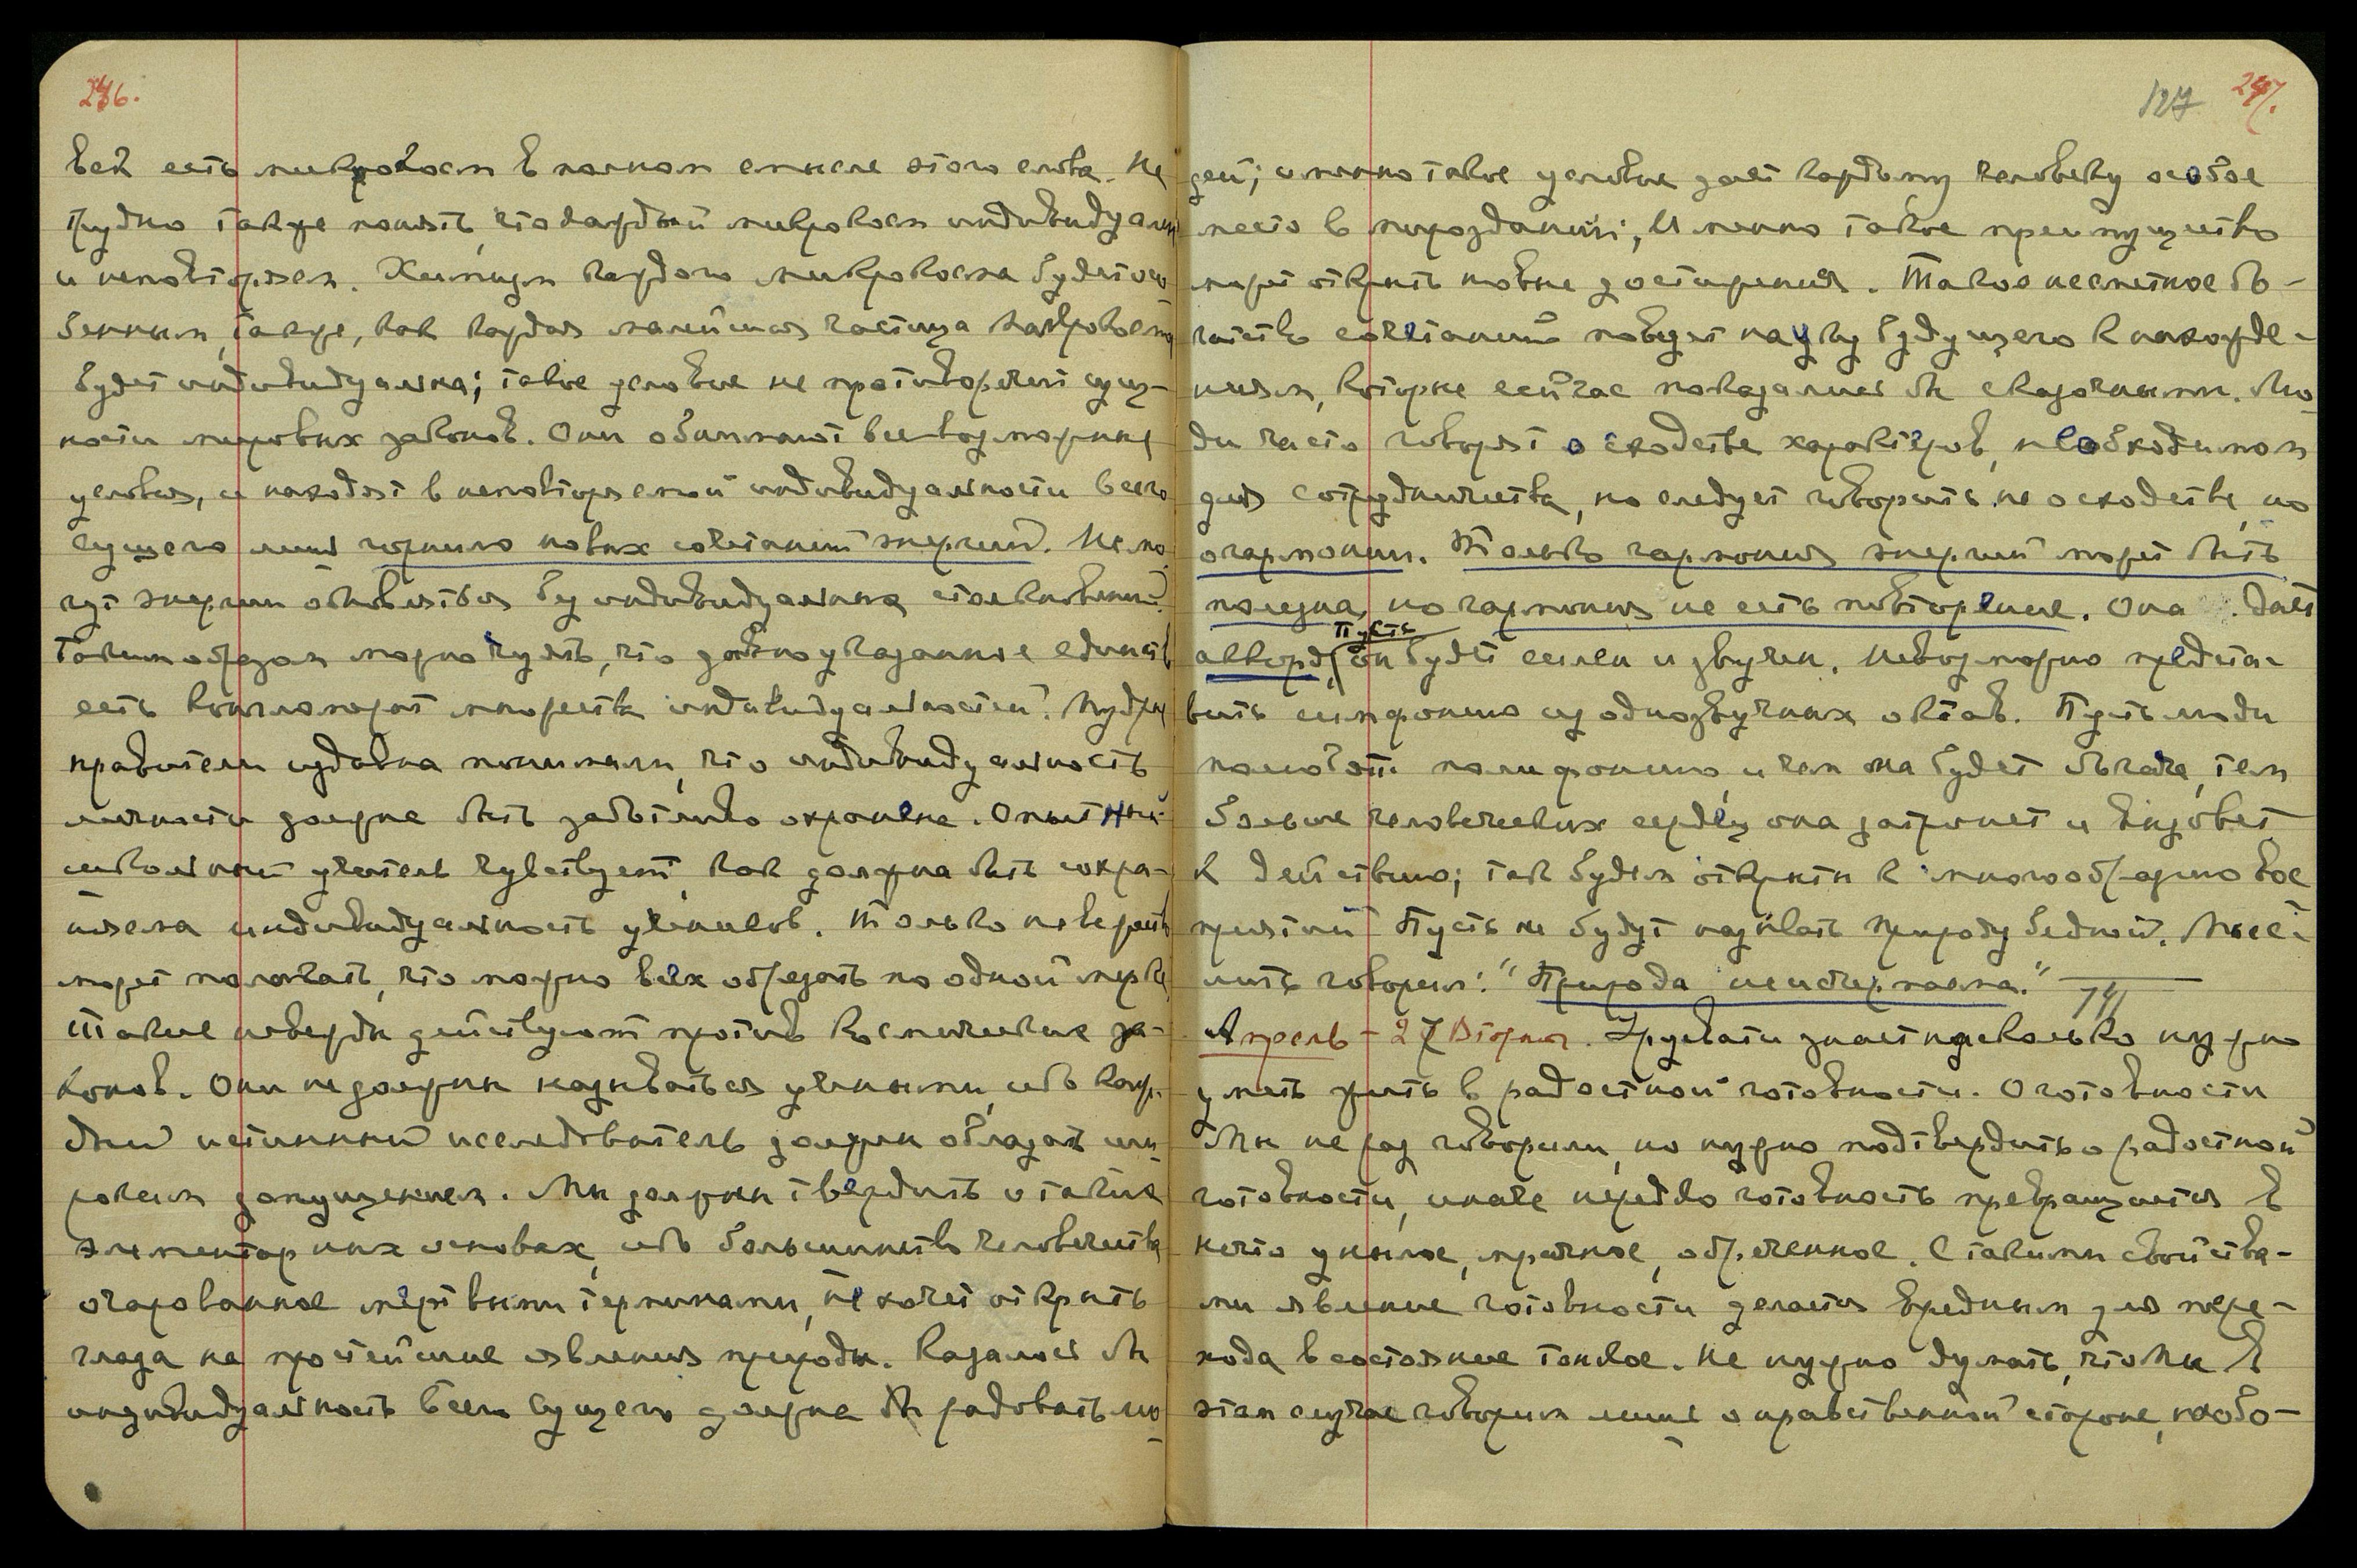 246.
век есть микрокосм в полном смысле этого слова. Не
трудно также понять, что каждый микрокосм индивидуален
и неповторяем. Химизм каждого микрокосма будет осо
бенным, также, как каждая малейшая частица макрокосма
будет индивидуальна; такое условие не противоречит сущ-
ности мировых законов. Они обнимают все возможные
условия, и находят в неповторяемой индивидуальности всего
сущего лишь горнило новых сочетаний энергий. Не мо
гут энергии обновляться без индивидуальных столкновений.
Таким образом можно чуять, что давно указанное единство
есть конгломерат множества индивидуальностей. Мудрые
правители издавна понимали, что индивидуальность
личности должна быть заботливо охранена. Опытный
школьный учитель чувствует, как должна быть сохра-
няема индивидуальность учеников. Только невежды
может полагать, что можно всех обрезать по одной мерке
Такие невежды действуют против космических за-
конов. Они не должны называться учеными, ибо каж-
дый истинный исследователь должен обладать ши
роким допущением. Мы должны твердить о таких
элементарных основах, ибо большинство человечества
очарованное мертвыми терминами, не хочет открыть
глаза на простейшие явления природы. Казалось бы
индивидуальность всего сущего должна бы радовать лю
127 247.
дей; именно такое условие дает каждому человеку особое
место в мироздании; Именно такое преимущество
может открыть новые достижения. Такое несметное бо-
гатство сочетаний поведет науку будущего к нахожде-
ниям, которые сейчас показались бы сказочными. Лю
ди часто говорят о сходстве характеров, необходимом
для сотрудничества, но следует говорить не о сходстве, но
о гармонии. Только гармония энергий может быть
полезна, но гармония не есть повторение. Она дает
Пусть
аккорд, он будет силен и звучен. Невозможно предста-
вить симфонию из однозвучных октав. Пусть люди
полюбят полифонию, и чем она будет богаче, тем
больше человеческих сердец она затронет и вызовет
к действию; так будем открыты к многообразию вос
приятий Пусть не будут называть природу бедной. Мысли
лить говорил: "Природа неисчерпаема."
Апрель - 27 Вторник. Урусвати знает насколько нужно
уметь жить в радостной готовности. О готовности
Мы не раз говорили, но нужно подтвердить о радостной
готовности, иначе нередко готовность превращается в
нечто унылое, мрачное, обреченное. С такими свойства-
ми явление готовности делается вредным для пере-
хода в состояние тонкое. Не нужно думать, что Мы в
этом случае говорим лишь о нравственной стороне, наобо-